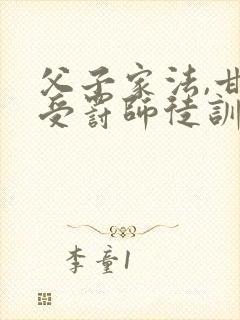 父子家法,甘
受罚師徒訓
李童1